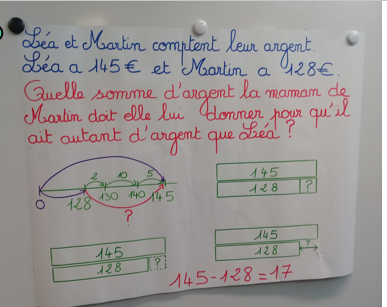 Léa et Martin comptent leur argent.
Léa a 145€ et Martin a 128€.
Quelle somme d'argent la maman de
Martin doit elle lui donner pour qu'il
ait autant d'argent que Léa ?
2 10 5
0 128 130 140 145
?
145
128 ?
145
128 ?
145
128 ?
145-128=17